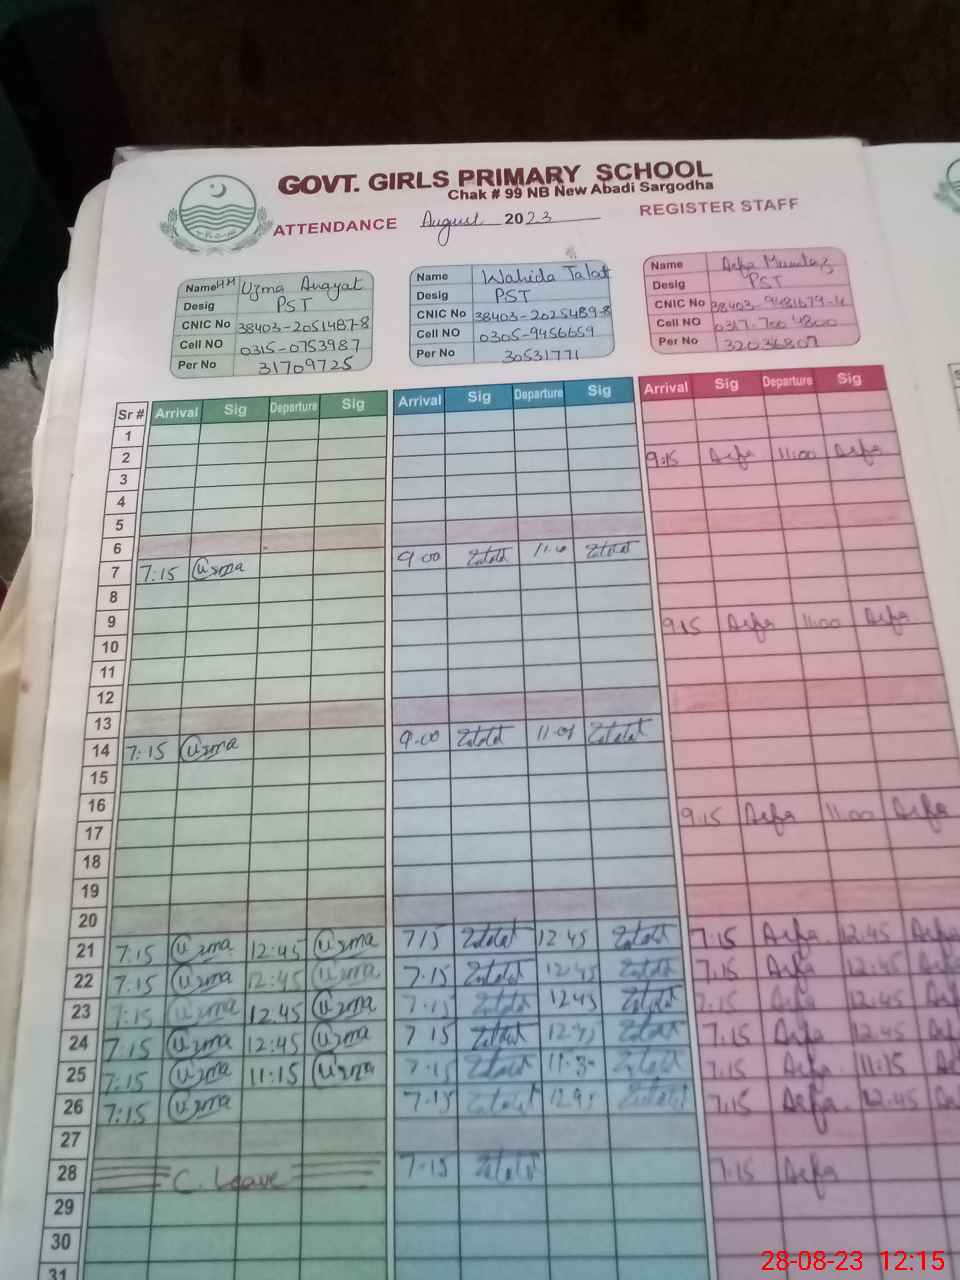 GOVT. GIRLS PRIMARY SCHOOL
Chak # 99 NB New Abadi Sargodha
ATTENDANCE August 2023 REGISTER STAFF
Name HM Uzma
Desig PST
CNIC No 38403-2051487-8
Cell NO 0315-0753987
Per No 31709725
Name Wahida Talat
Desig PST
CNIC No 38403-2025489-8
Cell NO 0305-9456659
Per No 30531771
Name Arfa Mumtaz
Desig PST
CNIC No 38403-9481679-4
Cell NO 0317-700 4800
Per No 32036807
Sr # Arrival Sig Departure Sig Arrival Sig Departure Sig Arrival Sig Departure Sig
1
2 9:15 Arfa 11:00 Arfa
3
4
5
6
7 7:15 Uzma 9:00
8
9 9:15 Arfa 11:00 Arfa
10
11
12
13
14 7:15 Uzma 9:00
15
16 9:15 Arfa 11:00 Arfa
17
18
19
20
21 7:15 Uzma 12:45 Uzma 7 15 12 45 7:15 Arfa 12:45 Arfa
22 7:15 Uzma 12:45 Uzma 7:15 12:45 7:15 Arfa 12:45
23 7:15 Uzma 12:45 Uzma 7:15 12 45 7:15 Arfa 12:45
24 7:15 Uzma 12:45 Uzma 7 15 7:15 Arfa 12:45
25 7:15 Uzma 11:15 Uzma 7:15 11:30 7:15 Arfa 11:15
26 7:15 Uzma 7:15 7:15 Arfa 12:45
27
28 C. Leave 7:15 7:15 Arfa
29
30
31
28-08-23 12:15